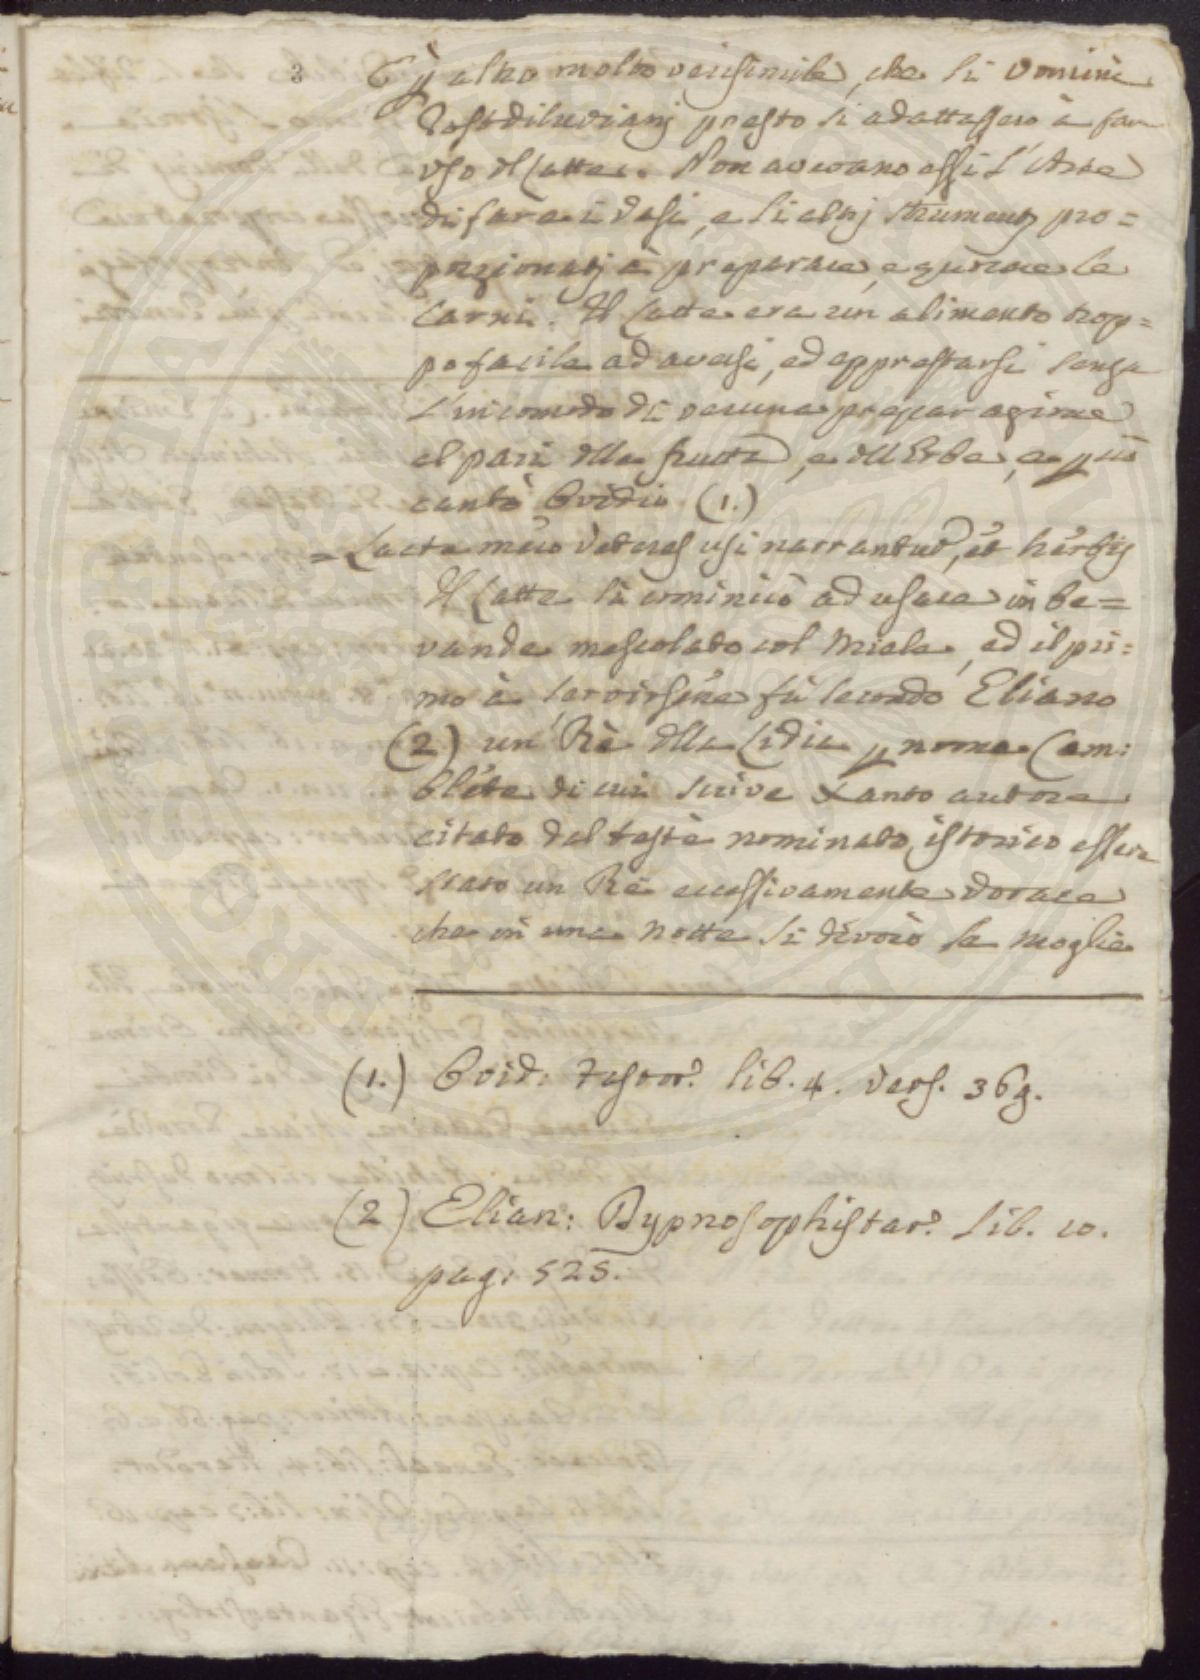 3 È p altro molto verisimile, che li Uomini
Postdiluviani presto si adattassero à far
uso del Latte. Non avevano essi l'Arte
di fare i Vasi, e li altri strumenti pro=
porzionati à preparare, e cuocere le
Carni. Il Latte era un alimento trop=
po facile ad aversi, ed apprestarsi senza
l'incomodo di veruna preparazione
al pari dlla frutta, e dll'Erbe, e più
cantò Ovidio (1.)
= Lacte mero Veteres usi narrantur, et herbis
Il Latte si cominciò ad usare in be=
vanda mescolato col Miele, ed il pri:
mo à servirsene fù secondo Eliano
(2) un Rè dlla Lidia p nome Cam:
blete di cui scrive Xanto autore
citato dal testè nominato istorico essere
stato un Rè eccessivamente vorace
che in una notte si divorò la moglie
(1.) Ovid: Fastor. lib. 4. vers. 369.
(2) Elian: Dypnosophistar. Lib. 10.
pag: 525.